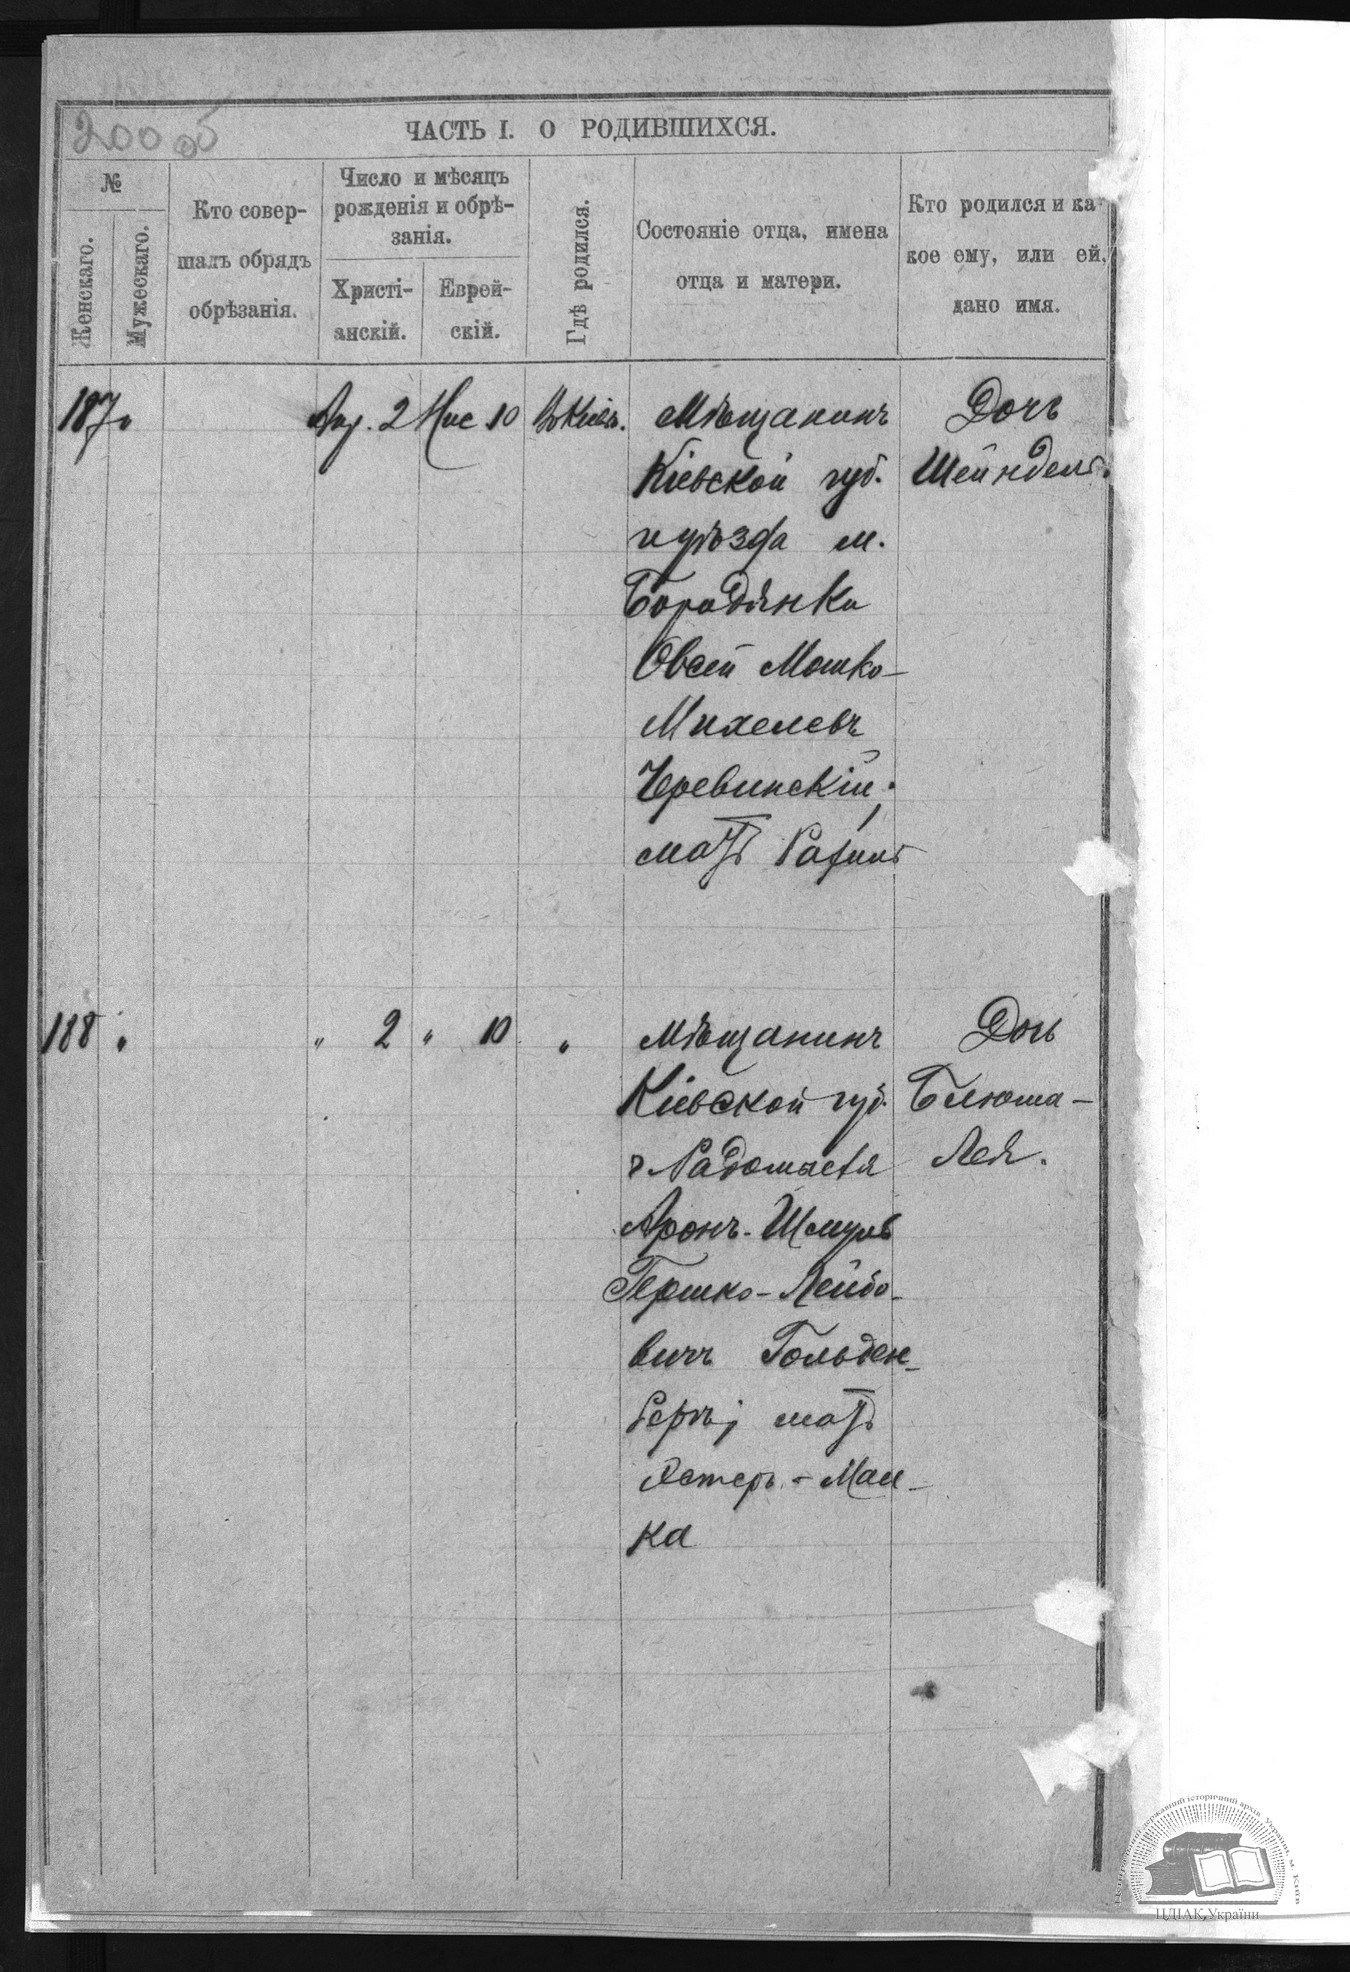 200 об
ЧАСТЬ I. О РОДИВШИХСЯ.
№
Женскаго.
Мужескаго.
Кто совер-
шалъ обрядъ
обрѣзанія.
Число и мѣсяцъ
рожденія и обрѣ-
занія.
Христі-
анскій.
Еврей-
скій.
Гдѣ родился.
Состояніе отца, имена
отца и матери.
Кто родился и ка-
кое ему, или ей,
дано имя.
187 "
Апр. 2
Нис 10
Въ Кіевѣ.
Мѣщанинъ
Кіевской губ.
и уѣзда м.
Бородянки
Овсей Мошко-
Михелевъ
Черевинскій;
мать Рахиль
Дочь
Шейндель.
188 "
" 2
" 10
"
Мѣщанинъ
Кіевской губ.
г Радомысля
Аронъ-Шмуль
Гершко-Лейбо-
вичъ Гольден-
бергъ; мать
Эстеръ-Мал-
ка
Дочь
Блюма-
Лея.
Центральний державний історичний архів України, м. Київ
ЦДІАК України